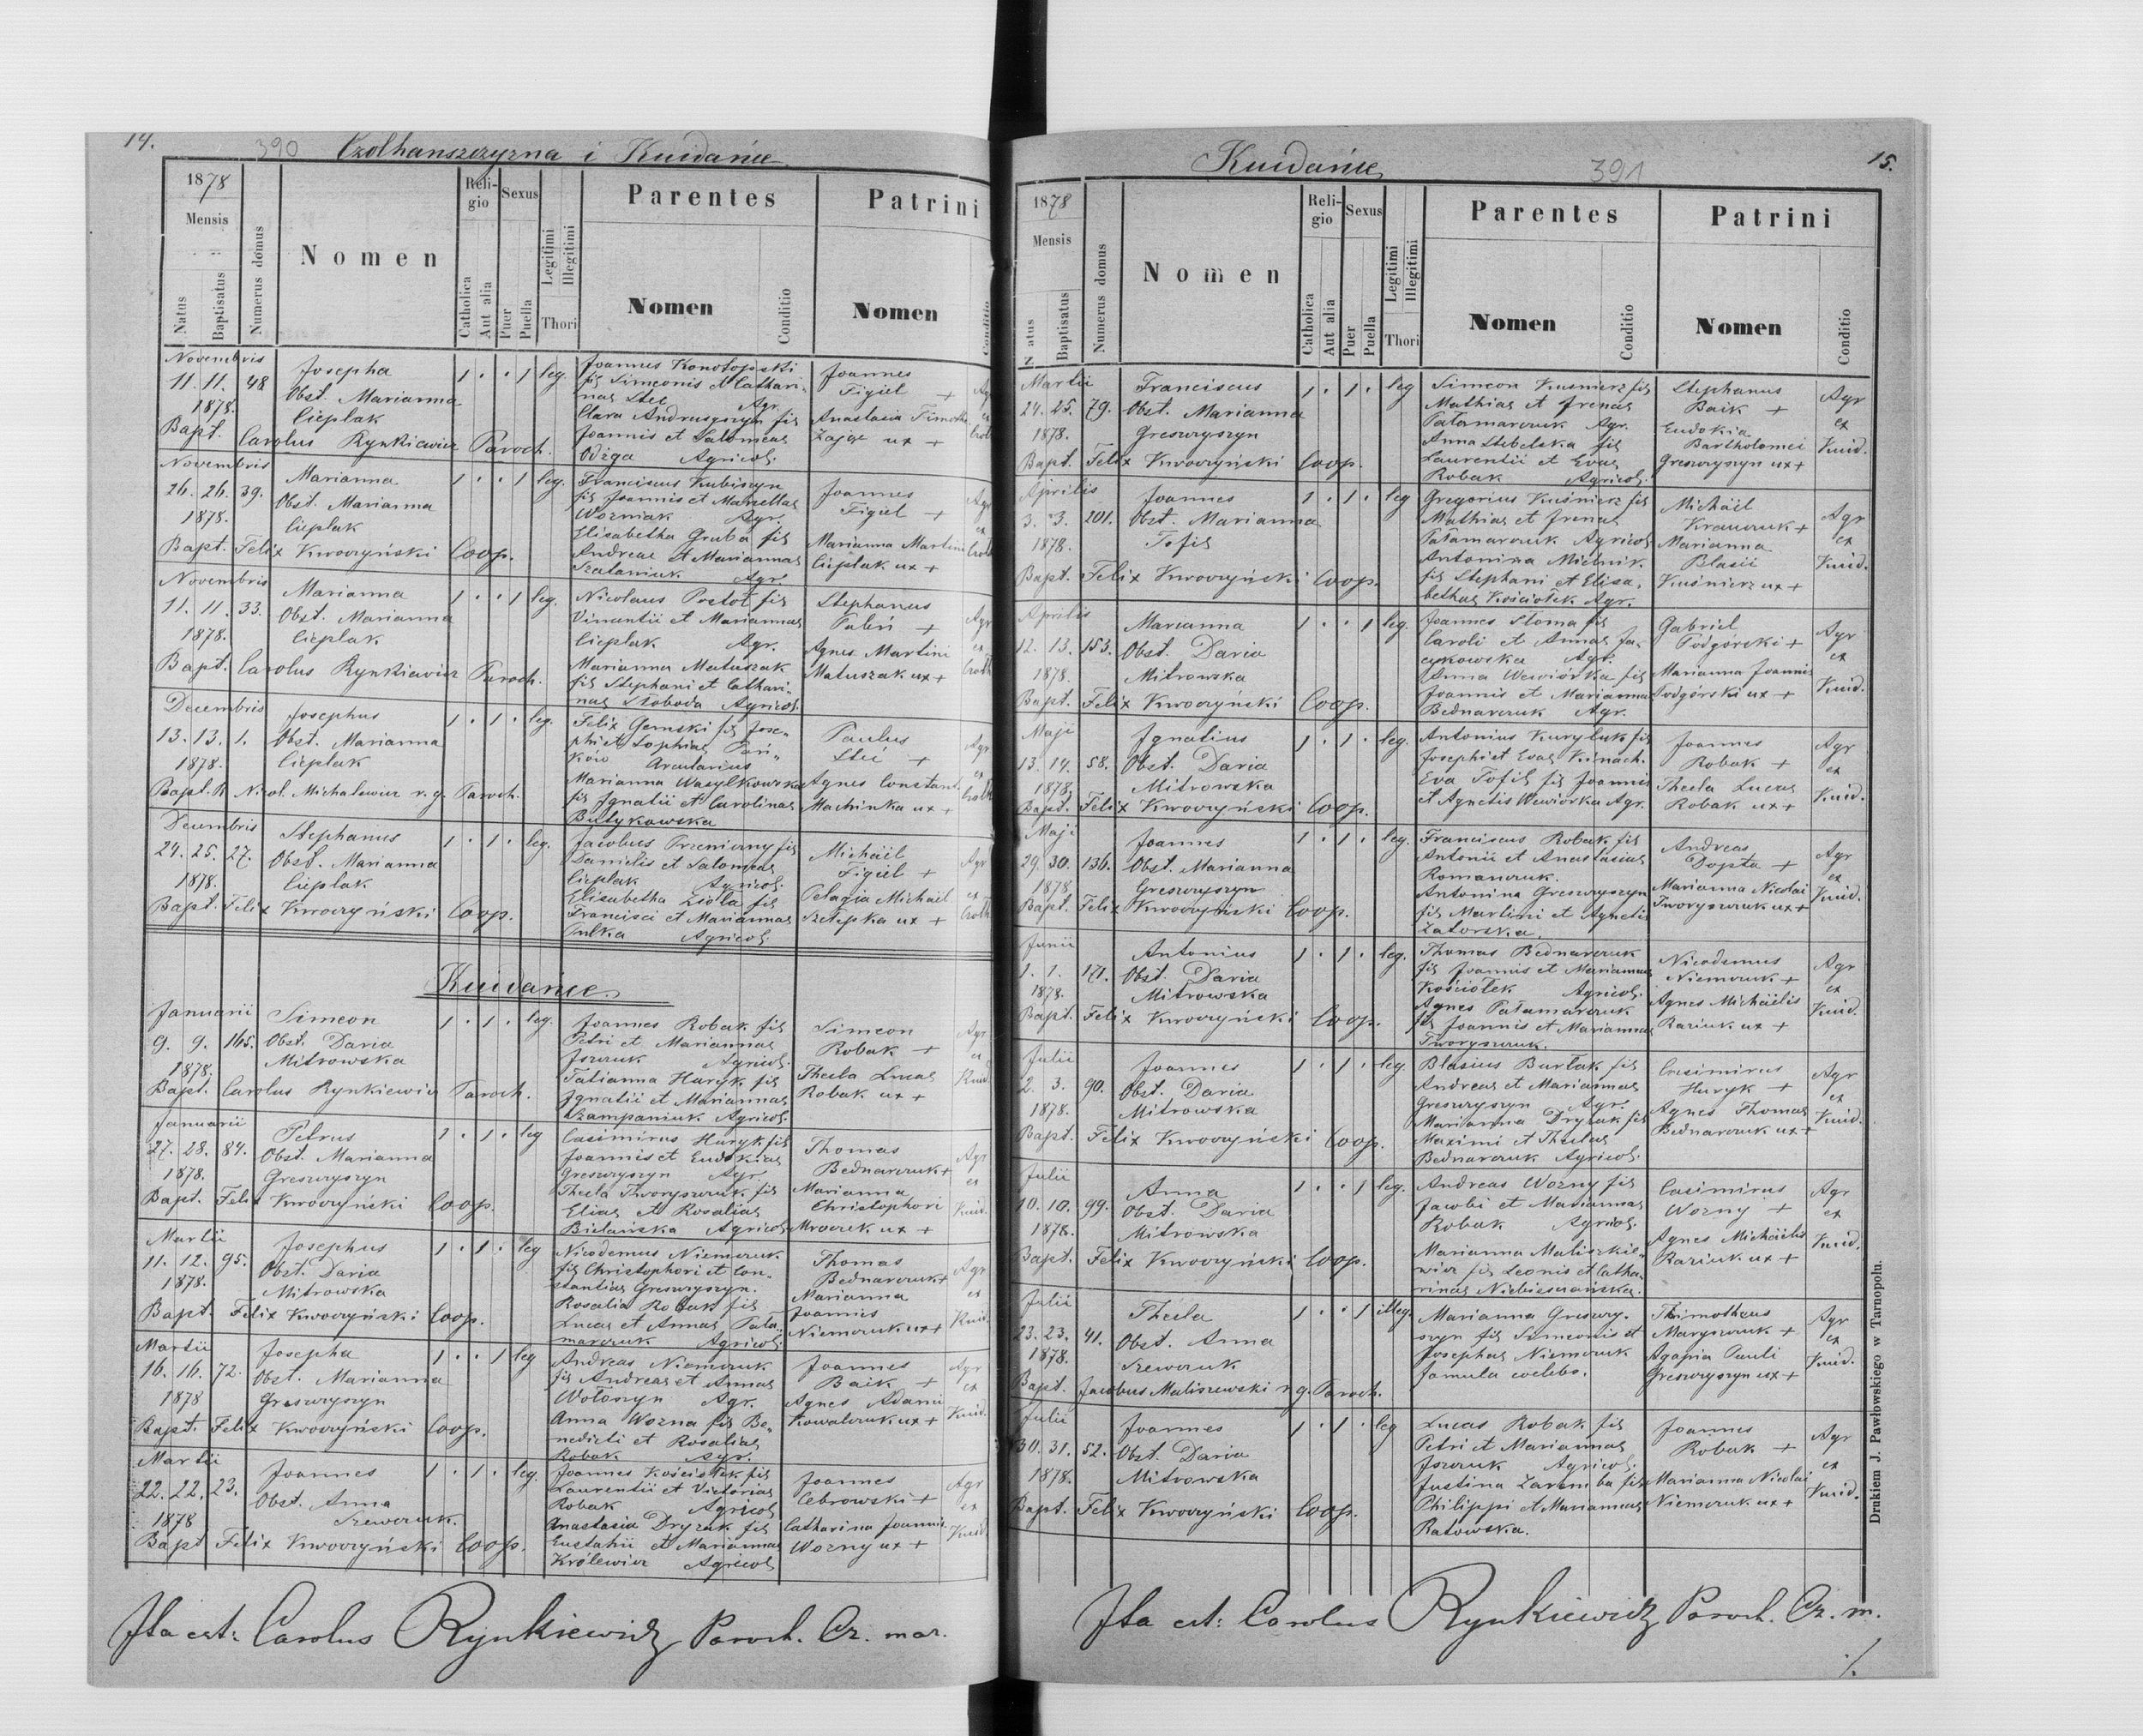 14.
390
Czolhanszczyzna i Kuidańce
1878
Mensis
Natus
Baptisatus
Numerus domus
Nomen
Religio
Catholica
Aut alia
Sexus
Puer
Puella
Legitimi
Illegitimi
Thori
Parentes
Nomen
Conditio
Patrini
Nomen
Conditio
Novembris
11. 11. 48 Josepha 1 . . 1 leg.
1878. Obst. Marianna
Cieplak
Joannes Konotopski
fil Simeonis et Cathari-
nae Stec Agr.
Clara Andruszyszyn fil
Joannis et Salomeae
Odżga Agricol.
Joannes
Figiel +
Anastasia Timothei
Zając ux +
Bapt. Carolus Rynkiewicz Paroch.
Novembris
26. 26. 39. Marianna 1 . . 1 leg.
1878. Obst. Marianna
Cieplak
Franciscus Kubiszyn
fil Joannis et Marcellae
Wozniak Agr.
Elisabetha Gruba fil
Andreae et Mariannae
Szataniuk Agr.
Joannes
Figiel +
Marianna Martini
Cieplak ux +
Bapt. Felix Kwoczyński Coop.
Novembris
11. 11. 33. Marianna 1 . . 1 leg.
1878. Obst. Marianna
Cieplak
Nicolaus Postół fil
Vincentii et Mariannae
Cieplak Agr.
Marianna Matuszak
fil Stephani et Cathari-
nae Słoboda Agricol.
Stephanus
Paleń +
Agnes Martini
Matuszak ux +
Bapt. Carolus Rynkiewicz Paroch.
Decembris
13. 13. 1. Josephus 1 . 1 . leg.
1878. Obst. Marianna
Cieplak
Felix Gemski fil Jose-
phi et Sophiae
Arcularius
Marianna Wasylkowska
fil Ignatii et Carolinae
Paulus
Steć +
Agnes Constant.
Machinka ux +
Bapt. R Nicol. Michalewicz r. g. Paroch.
Decembris
24. 25. 27. Stephanus 1 . 1 . leg.
1878. Obst. Marianna
Cieplak
Jacobus Przemierny fil
Danielis et Salomeae
Cieplak Agricol.
Elisabetha Zioła fil
Francisci et Mariannae
Pulka Agricol.
Michäel
Figiel +
Pelagia Michäel
Szelepka ux +
Bapt. Felix Kwoczyński Coop.
Kuidańce.
Januarii
9. 9. 165. Simeon 1 . 1 . leg.
1878. Obst. Daria
Mitrowska
Joannes Robak fil
Petri et Mariannae
Jszczuk Agricol.
Tatianna Huryk fil
Ignatii et Mariannae
Szampaniuk Agricol.
Simeon
Robak +
Thecla Lucae
Robak ux +
Bapt. Carolus Rynkiewicz Paroch.
Januarii
27. 28. 84. Petrus 1 . 1 . leg
1878. Obst. Marianna
Greszczyszyn
Casimirus Huryk fil
Joannis et Eudokiae
Greszczyszyn Agr.
Thecla Tworyszczuk fil
Eliae et Rosaliae
Bielańska Agricol
Thomas
Bednarczuk +
Marianna
Christophori
Mroczek ux +
Bapt. Felix Kwoczyński Coop.
Martii
11. 12. 95. Josephus 1 . 1 . leg
1878. Obst. Daria
Mitrowska
Nicodemus Niemczuk
fil Christophori et Con-
stantiae Greszczyszyn.
Rosalia Robak fil
Lucae et Annae Pała-
marczuk Agricol.
Thomas
Bednarczuk +
Marianna
Joannis
Niemczuk ux +
Bapt. Felix Kwoczyński Coop.
Martii
16. 16. 72. Josepha 1 . . 1 leg
1878 Obst. Marianna
Greszczyszyn
Andreas Niemczuk
fil Andreae et Annae
Wołoszyn Agr.
Anna Wozna fil Be-
nedicti et Rosaliae
Robak Agr.
Joannes
Baik +
Agnes Adami
Kowalczuk ux +
Agr
ex
Kuid.
Bapt. Felix Kwoczyński Coop.
Martii
22. 22. 23. Joannes 1 . 1 . leg.
1878 Obst. Anna
Szewczuk.
Joannes Kościołek fil
Laurentii et Victoriae
Robak Agricol
Anastasia Dryzak fil
Eustahii et Mariannae
Królewicz Agricol
Joannes
Cebrowski +
Catharina Joannis
Wozny ux +
Agr
ex
Kuid.
Bapt Felix Kwoczyński Coop.
Ita est: Carolus Rynkiewicz Paroch. Cz. mar.
15.
Kuidańce
391
1878
Mensis
Natus
Baptisatus
Numerus domus
Nomen
Religio
Catholica
Aut alia
Sexus
Puer
Puella
Legitimi
Illegitimi
Thori
Parentes
Nomen
Conditio
Patrini
Nomen
Conditio
Martii
24. 25. 79. Franciscus 1 . 1 . leg
1878. Obst. Marianna
Greszczyszyn
Simeon Kusnierz fil
Mathiae et Irenae
Pałamarczuk Agr.
Anna Stebelska fil
Laurentii et Evae
Robak Agricol.
Stephanus
Baik +
Eudokia
Bartholomei
Greszczyszyn ux +
Agr
ex
Kuid.
Bapt. Felix Kwoczyński Coop.
Aprilis
3. 3. 201. Joannes 1 . 1 . leg
1878. Obst. Marianna
Tofil
Gregorius Kuśnierz fil
Mathiae et Irenae
Pałamarczuk Agricol
Antonina Mielnik
fil Stephani et Elisa-
bethae Kościołek Agr.
Michäel
Krawczuk +
Marianna
Blasii
Kuśnierz ux +
Agr
ex
Kuid.
Bapt. Felix Kwoczyński Coop.
Aprilis
12. 13. 153. Marianna 1 . . 1 leg.
1878. Obst. Daria
Mitrowska
Joannes Słoma fil
Caroli et Annae Ja-
cykowska Agr.
Anna Wewiórka fil
Joannis et Mariannae
Bednarczuk Agr.
Gabriel
Podgórski +
Marianna Joannis
Podgórski ux +
Agr
ex
Kuid.
Bapt. Felix Kwoczyński Coop.
Maji
13. 14. 58. Ignatius 1 . 1 . leg.
1878. Obst. Daria
Mitrowska
Antonius Kuryluk fil
Josephi et Evae Kunach.
Eva Tofil fil Joannis
et Agnetis Wewiórka Agr.
Joannes
Robak +
Thecla Lucae
Robak ux +
Agr
ex
Kuid.
Bapt. Felix Kwoczyński Coop.
Maji
29. 30. 136. Joannes 1 . 1 . leg.
1878. Obst. Marianna
Greszczyszyn
Franciscus Robak fil
Antonii et Anastasiae
Romanczuk.
Antonina Greszczyszyn
fil Martini et Agnetis
Zatorska.
Andreas
Dopta +
Marianna Nicolai
Tworyszczuk ux +
Agr
ex
Kuid.
Bapt. Felix Kwoczyński Coop.
Junii
1. 1. 171. Antonius 1 . 1 . leg.
1878. Obst. Daria
Mitrowska
Thomas Bednarczuk
fil Joannis et Mariannae
Kościołek Agricol.
Agnes Pałamarczuk
fil Joannis et Mariannae
Tworyszczuk.
Nicodemus
Niemczuk +
Agnes Michäelis
Raziuk ux +
Agr
ex
Kuid.
Bapt. Felix Kwoczyński Coop.
Julii
2. 3. 90. Joannes 1 . 1 . leg
1878. Obst. Daria
Mitrowska
Blasius Burłak fil
Andreae et Mariannae
Greszczyszyn Agr.
Marianna Dryzak fil
Maximi et Theclae
Bednarczuk Agricol.
Casimirus
Huryk +
Agnes Thomae
Bednarczuk ux +
Agr
ex
Kuid.
Bapt. Felix Kwoczyński Coop.
Julii
10. 10. 99. Anna 1 . . 1 leg.
1878. Obst. Daria
Mitrowska
Andreas Wozny fil
Jacobi et Mariannae
Robak Agricol.
Marianna Maliszkie-
wicz fil Leonis et Catha-
rinae Niebieszczańska.
Casimirus
Wozny +
Agnes Michäelis
Raziuk ux +
Agr
ex
Kuid.
Bapt. Felix Kwoczyński Coop.
Julii
23. 23. 41. Thecla 1 . . 1 illeg.
1878. Obst. Anna
Szewczuk
Marianna Greszczy-
szyn fil Simeonis et
Josephae Niemczuk
famula coelebs.
Thimotheus
Maryszczuk +
Agapia Pauli
Greszczyszyn ux +
Agr
ex
Kuid.
Bapt. Jacobus Maliszewski r. g. Paroch.
Julii
30. 31. 52. Joannes 1 . 1 . leg
1878. Obst. Daria
Mitrowska
Lucas Robak fil
Petri et Mariannae
Jszczuk Agricol.
Justina Zaremba fil
Philippi et Mariannae
Ratowska.
Joannes
Robak +
Marianna Nicolai
Niemczuk ux +
Agr
ex
Kuid.
Bapt. Felix Kwoczyński Coop.
Drukiem J. Pawłowskiego w Tarnopolu.
Ita est: Carolus Rynkiewicz Paroch. Cz. m.